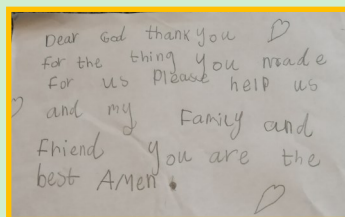 Dear God thank you
for the thing you made
for us Please help us
and my Family and
Fhiend you are the
best Amen.